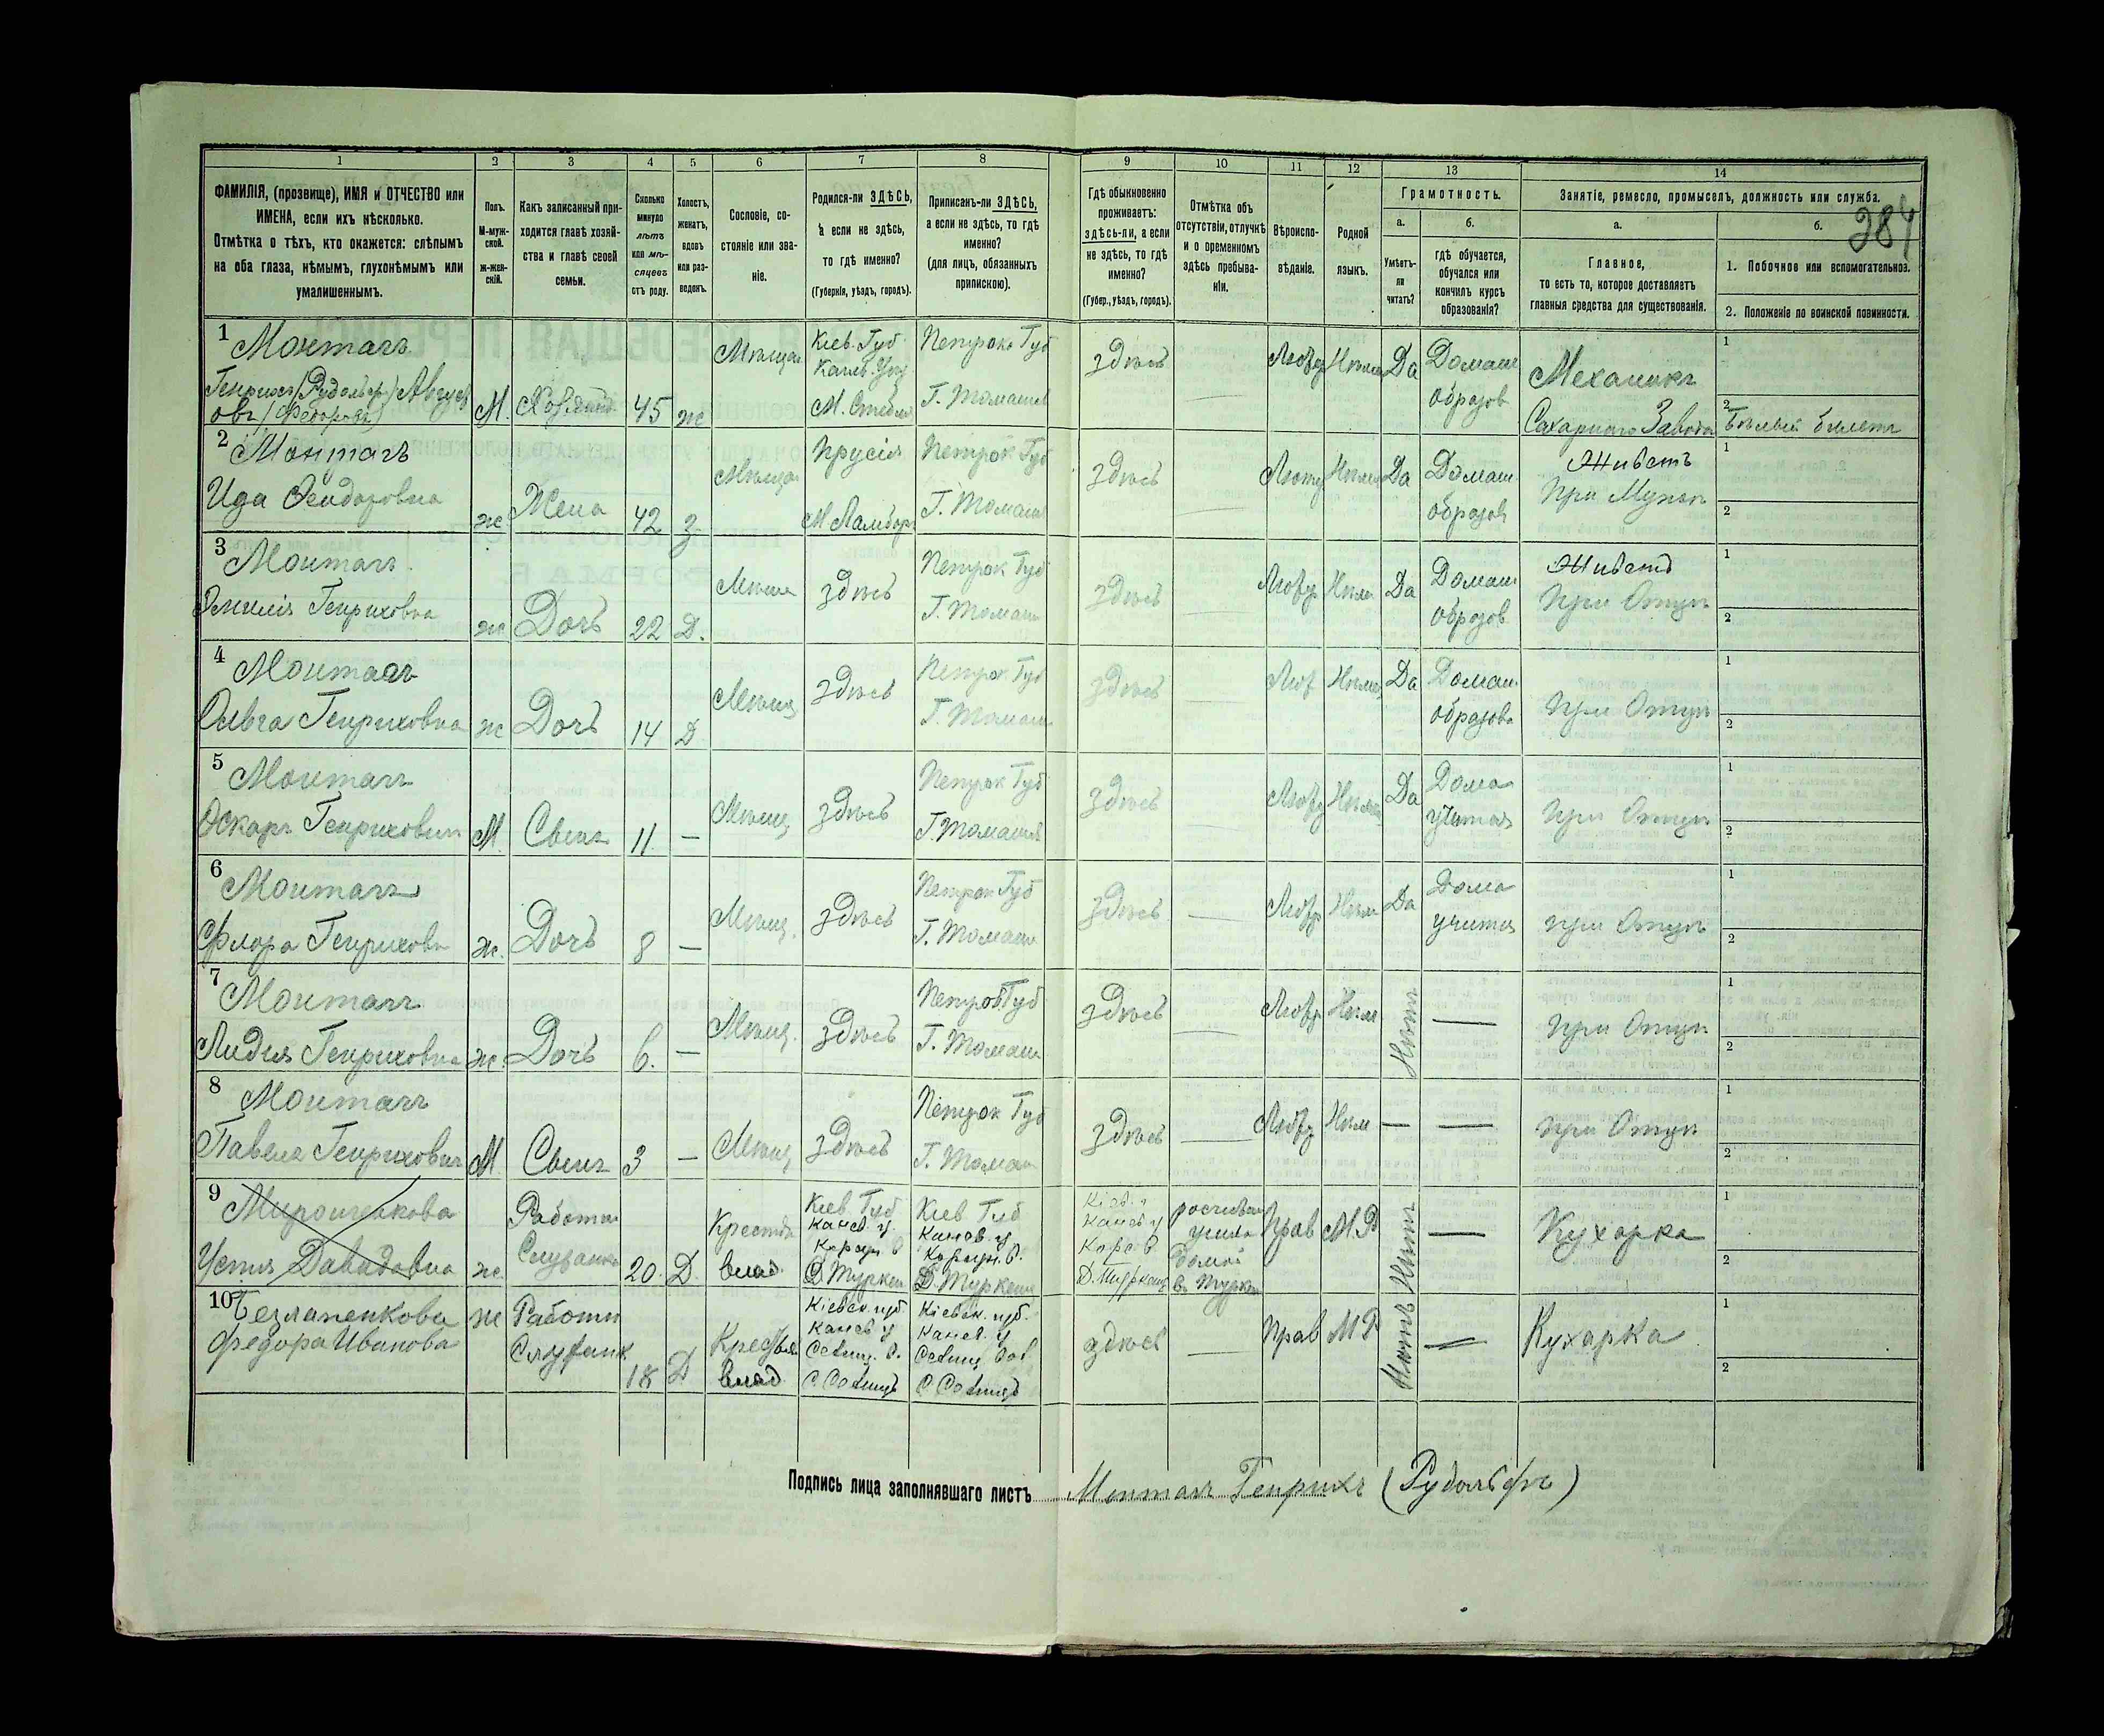 1 2 3 4 5 6 7 8 9 10 11 12 13 14
ФАМИЛІЯ, (прозвище), ИМЯ и ОТЧЕСТВО или
ИМЕНА, если ихъ нѣсколько.
Отмѣтка о тѣхъ, кто окажется: слѣпымъ
на оба глаза, нѣмымъ, глухонѣмымъ или
умалишеннымъ.
Полъ.
М-муж-
ской.
ж-жен-
скій.
Какъ записанный при-
ходится главѣ хозяй-
ства и главѣ своей
семьи.
Сколько
минуло
лѣтъ
или мѣ-
сяцевъ
отъ роду.
Холостъ,
женатъ,
вдовъ
или раз-
веденъ.
Сословіе, со-
стояніе или зва-
ніе.
Родился-ли ЗДѢСЬ,
а если не здѣсь,
то гдѣ именно?
(Губернія, уѣздъ, городъ).
Приписанъ-ли ЗДѢСЬ,
а если не здѣсь, то гдѣ
именно?
(для лицъ, обязанныхъ
припискою).
Гдѣ обыкновенно
проживаетъ:
здѣсь-ли, а если
не здѣсь, то гдѣ
именно?
(Губер., уѣздъ, городъ).
Отмѣтка объ
отсутствіи, отлучкѣ
и о временномъ
здѣсь пребыва-
ніи.
Вѣроиспо-
вѣданіе.
Родной
языкъ.
Грамотность.
а.
Умѣетъ-
ли
читать?
б.
гдѣ обучается,
обучался или
кончилъ курсъ
образованія?
Занятіе, ремесло, промыселъ, должность или служба.
284
а.
Главное,
то есть то, которое доставляетъ
главныя средства для существованія.
б.
1. Побочное или вспомогательное.
2. Положеніе по воинской повинности.
1 Монтагъ
Генрихъ (Рудольфъ) Август
овъ (Федоровъ)
М. 45 ж
Мѣщан
Кіев. Губ.
Канев. Уѣз
Петрок Губ
Г. Томашев
здѣсь
—
Лютер Нѣмец Да
Домаш
образов
Механикъ
Сахарнаго Завода
1
2 Бѣлый билетъ
2 Монтагъ
Ида Феодоровна
ж Жена 42 з
Мѣщан
Прусія
Петрок Губ
Г. Томаш
здѣсь
—
Лютер Нѣмец Да
Домаш
образов
Живетъ
При Мужѣ
1
2
3 Монтагъ
Эмилія Генриховна
ж Дочь 22 Д.
Мѣщан
здѣсь
Петрок Губ
Г. Томаш
здѣсь
—
Лютер Нѣм Да
Домаш
образов
Живетъ
При Отцѣ
1
2
4 Монтагъ
Ольга Генриховна
ж Дочь 14 Д
Мѣщ
здѣсь
Петрок Губ
Г. Томаш
здѣсь
—
Лют Нѣмец Да
Домаш
образов
При Отцѣ
1
2
5 Монтагъ
Оскаръ Генрихович
М. Сынъ 11 —
Мѣщ
здѣсь
Петрок Губ
Г. Томашев
здѣсь
—
Лютер Нѣмец Да
Дома
учится
При Отцѣ
1
2
6 Монтагъ
Флора Генриховн
ж. Дочь 8 —
Мѣщ.
здѣсь
Петрок Губ
Г. Томаш
здѣсь
—
Лютер Нѣм Да
Дома
учится
при Отцѣ
1
2
7 Монтагъ
Лидія Генриховна
ж. Дочь 6. —
Мѣщ.
здѣсь
Петрок Губ
Г. Томаш
здѣсь
—
Лютер Нѣм Нѣтъ —
При Отцѣ
1
2
8 Монтагъ
Павелъ Генрихович
М Сынъ 3 —
Мѣщ
здѣсь
Петрок Губ
Г. Томаш
здѣсь
—
Лютер Нѣм — —
при Отцѣ
1
2
9 Мирошникова
Устія Давидовна
ж. 20. Д.
Кіев Губ
Канев. у.
Кіев Губ
Канев. у.
Кіев.
Канев у
домой
Прав М.Р Нѣтъ —
Кухарка
1
2
10 Безлапенкова
Федора Иванова
ж Работн
18 Д
Кіевск. губ.
Канев у
Кіевск. губ.
Канев. у
здѣсь
—
Прав М Р Нѣтъ —
Кухарка
1
2
Подпись лица заполнявшаго листъ Монтагъ Генрихъ (Рудольфъ)